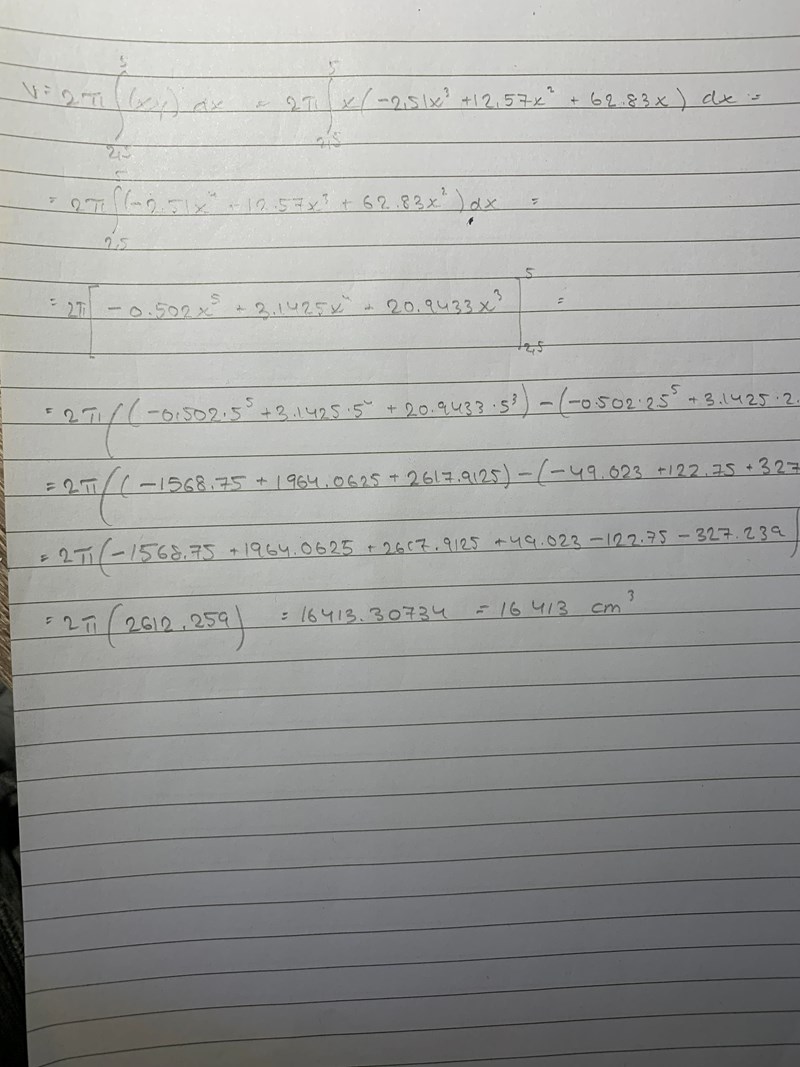 V = 2π ∫_{2,5}^{5} (xy) dx = 2π ∫_{2,5}^{5} x(-2,51x³ +12,57x² + 62.83x) dx =
= 2π ∫_{2,5}^{5} (-2.51x⁴ + 12.57x³ + 62.83x²) dx =
= 2π [ -0.502x⁵ + 3.1425x⁴ + 20.9433x³ ]_{2,5}^{5} =
= 2π ( (-0,502·5⁵ + 3.1425·5⁴ + 20.9433·5³) - (-0.502·2.5⁵ + 3.1425·2.
= 2π ( ( -1568.75 + 1964.0625 + 2617.9125) - (-49.023 +122.75 +327
= 2π (-1568.75 +1964.0625 +2617.9125 +49.023 -122.75 -327.239)
= 2π (2612.259) = 16413.30734 = 16413 cm³